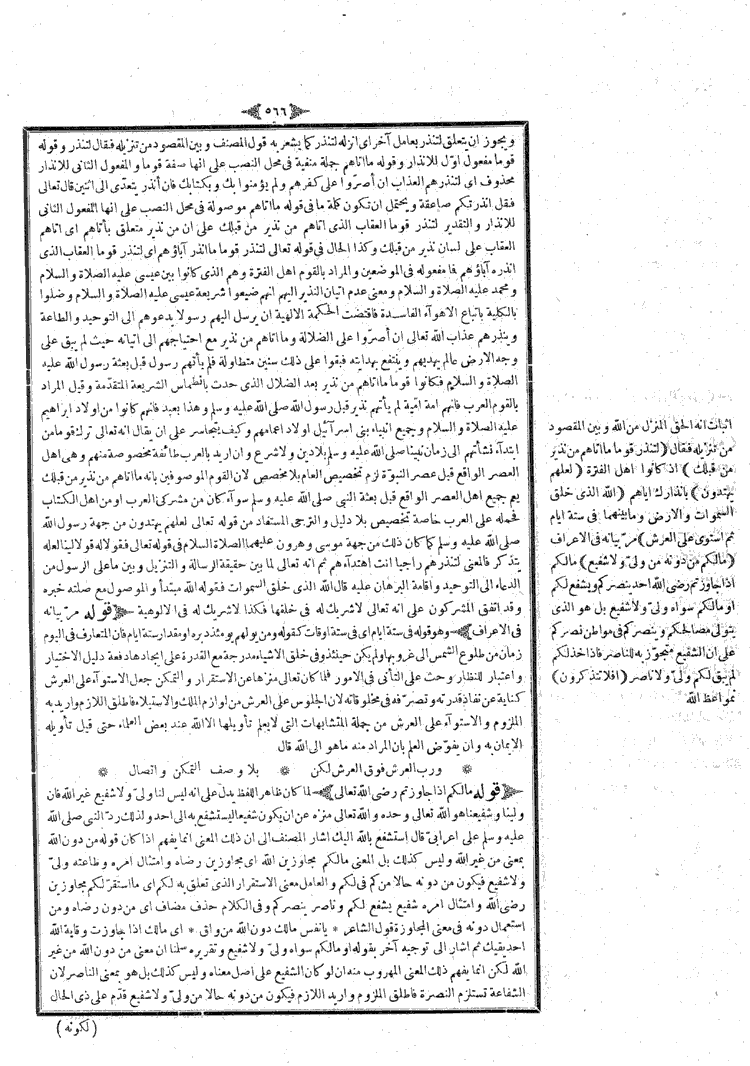 ٥٦٦
ويجوز ان يتعلق لتنذر بعامل آخر اى انزله لتنذر كما يشعر به قول المصنف وبين المقصود من تنزيله فقال لتنذر وقوله
قوما مفعول اول للانذار وقوله ما اتاهم جملة منفية فى محل النصب على انها صفة قوما والمفعول الثانى للانذار
محذوف اى لتنذرهم العذاب ان أصرّوا على كفرهم ولم يؤمنوا بك وبكتابك فان أنذر يتعدّى الى اثنين قال تعالى
فقل انذرتكم صاعقة ويحتمل ان تكون كلمة ما فى قوله ما اتاهم موصولة فى محل النصب على انها المفعول الثانى
للانذار والتقدير لتنذر قوما العقاب الذى اتاهم من نذير من قبلك على ان من نذير متعلق بأتاهم اى اتاهم
العقاب على لسان نذير من قبلك وكذا الحال فى قوله تعالى لتنذر قوما ما انذر آباؤهم اى لتنذر قوما العقاب الذى
انذره آباؤهم فما مفعوله فى الموضعين والمراد بالقوم اهل الفترة وهم الذى كانوا بين عيسى عليه الصلاة والسلام
ومحمد عليه الصلاة والسلام ومعنى عدم اتيان النذير اليهم انهم ضيعوا شريعة عيسى عليه الصلاة والسلام وضلوا
بالكلية باتباع الاهوآء الفاسدة فاقتضت الحكمة الالهية ان يرسل اليهم رسولا يدعوهم الى التوحيد والطاعة
وينذرهم عذاب الله تعالى ان أصرّوا على الضلالة وما اتاهم من نذير مع احتياجهم الى اتيانه حيث لم يبق على
وجه الارض عالم يهديهم وينتفع بهدايته فبقوا على ذلك سنين متطاولة فلم يأتهم رسول قبل بعثة رسول الله عليه
الصلاة والسلام فكانوا قوما ما اتاهم من نذير بعد الضلال الذى حدث بانطماس الشريعة المتقدّمة وقيل المراد
بالقوم العرب فانهم امة امّية لم يأتهم نذير قبل رسول الله صلى الله عليه وسلم وهذا بعيد فانهم كانوا من اولاد ابراهيم
عليه الصلاة والسلام وجميع انبياء بنى اسرآئيل اولاد اعمامهم وكيف يتجاسر على ان يقال انه تعالى ترك قوما من
ابتدآء نشأتهم الى زمان نبينا صلى الله عليه وسلم بلا دين ولا شرع وان اريد بالعرب طائفة مخصوصة منهم وهى اهل
العصر الواقع قبل عصر النبوّة لزم تخصيص العام بلا مخصص لان القوم الموصوفين بانه ما اتاهم من نذير من قبلك
يعم جميع اهل العصر الواقع قبل بعثة النبى صلى الله عليه وسلم سوآء كان من مشركى العرب او من اهل الكتاب
فحمله على العرب خاصة تخصيص بلا دليل والترجى المستفاد من قوله تعالى لعلهم يهتدون من جهة رسول الله
صلى الله عليه وسلم كما كان ذلك من جهة موسى وهرون عليهما الصلاة السلام فى قوله تعالى فقولا له قولا لينا لعله
يتذكر فالمعنى لتنذرهم راجيا انت اهتدآءهم ثم انه تعالى لما بين حقيقة الرسالة والتنزيل وبين ما على الرسول من
الدعاء الى التوحيد واقامة البرهان عليه قال الله الذى خلق السموات فقوله الله مبتدأ والموصول مع صلته خبره
وقد اتفق المشركون على انه تعالى لا شريك له فى خلقها فكذا لا شريك له فى الالوهية قوله مرّ بيانه
فى الاعراف وهو قوله فى ستة ايام اى فى ستة اوقات كقوله ومن يولهم يومئذ دبره او مقدار ستة ايام فان المتعارف فى اليوم
زمان من طلوع الشمس الى غروبها ولم يكن حينئذ وفى خلق الاشياء مدرجة مع القدرة على ايجادها دفعة دليل الاختيار
واعتبار للنظار وحث على التأنى فى الامور فلما كان تعالى منزها عن الاستقرار والتمكن جعل الاستوآء على العرش
كناية عن نفاذ قدرته وتصرّفه فى مخلوقاته لان الجلوس على العرش من لوازم الملك والاستيلاء فاطلق اللازم واريد به
الملزوم والاستوآء على العرش من جملة المتشابهات التى لا يعلم تأويلها الا الله عند بعض العلماء حتى قيل تأويله
الايمان به وان يفوّض العلم بان المراد منه ماهو الى الله قال
ورب العرش فوق العرش لكن * بلا وصف التمكن واتصال
قوله مالكم اذا جاوزتم رضى الله تعالى لما كان ظاهر اللفظ يدل على انه ليس لنا ولىّ ولا شفيع غير الله فان
ولينا وشفيعنا هو الله تعالى وحده والله تعالى منزه عن ان يكون شفيعا ليستشفع به الى احد ولذلك ردّ النبى صلى الله
عليه وسلم على اعرابىّ قال إستشفع بالله اليك اشار المصنف الى ان ذلك المعنى انما يفهم اذا كان قوله من دون الله
بمعنى من غير الله وليس كذلك بل المعنى مالكم مجاوزين الله اى مجاوزين رضاه وامتثال امره وطاعته ولىّ
ولا شفيع فيكون من دونه حالا من كم فى لكم والعامل معنى الاستقرار الذى تعلق به لكم اى ما استقرّ لكم مجاوزين
رضى الله وامتثال امره شفيع يشفع لكم وناصر ينصركم وفى الكلام حذف مضاف اى من دون رضاه ومن
استعمال دونه فى معنى المجاوزة قول الشاعر * يا نفس مالك دون الله من واق * اى مالك اذا جاوزت وقاية الله
احد يقيك ثم اشار الى توجيه آخر بقوله او مالكم سواه ولىّ ولا شفيع وتقريره سلمنا ان معنى من دون الله من غير
الله لكن انما يفهم ذلك المعنى المهروب منه ان لو كان الشفيع على اصل معناه وليس كذلك بل هو بمعنى الناصر لان
الشفاعة تستلزم النصرة فاطلق الملزوم واريد اللازم فيكون من دونه حالا من ولىّ ولا شفيع قدّم على ذى الحال
(لكونه)
اثبات انه الحق المنزل من الله وبين المقصود
من تنزيله فقال (لتنذر قوما ما اتاهم من نذير
من قبلك) اذ كانوا اهل الفترة (لعلهم
يهتدون) بانذارك اياهم (الله الذى خلق
السموات والارض وما بينهما فى ستة ايام
ثم استوى على العرش) مرّ بيانه فى الاعراف
(مالكم من دونه من ولىّ ولا شفيع) مالكم
اذا جاوزتم رضى الله احد ينصركم ويشفع لكم
او مالكم سواه ولىّ ولا شفيع بل هو الذى
يتولى مصالحكم وينصركم فى مواطن نصركم
على ان الشفيع متجوّز به للناصر فاذا خذلكم
لم يبق لكم ولىّ ولا ناصر (افلا تتذكرون)
بمواعظ الله